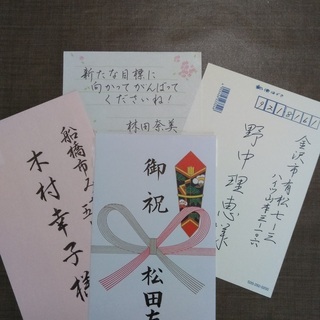 新たな目標に
向かってがんばって
くださいね！
林田奈美
船橋市
木村幸子様
御祝
松田
郵便はがき
金沢市有松七-三
ハイツ
野中理恵様